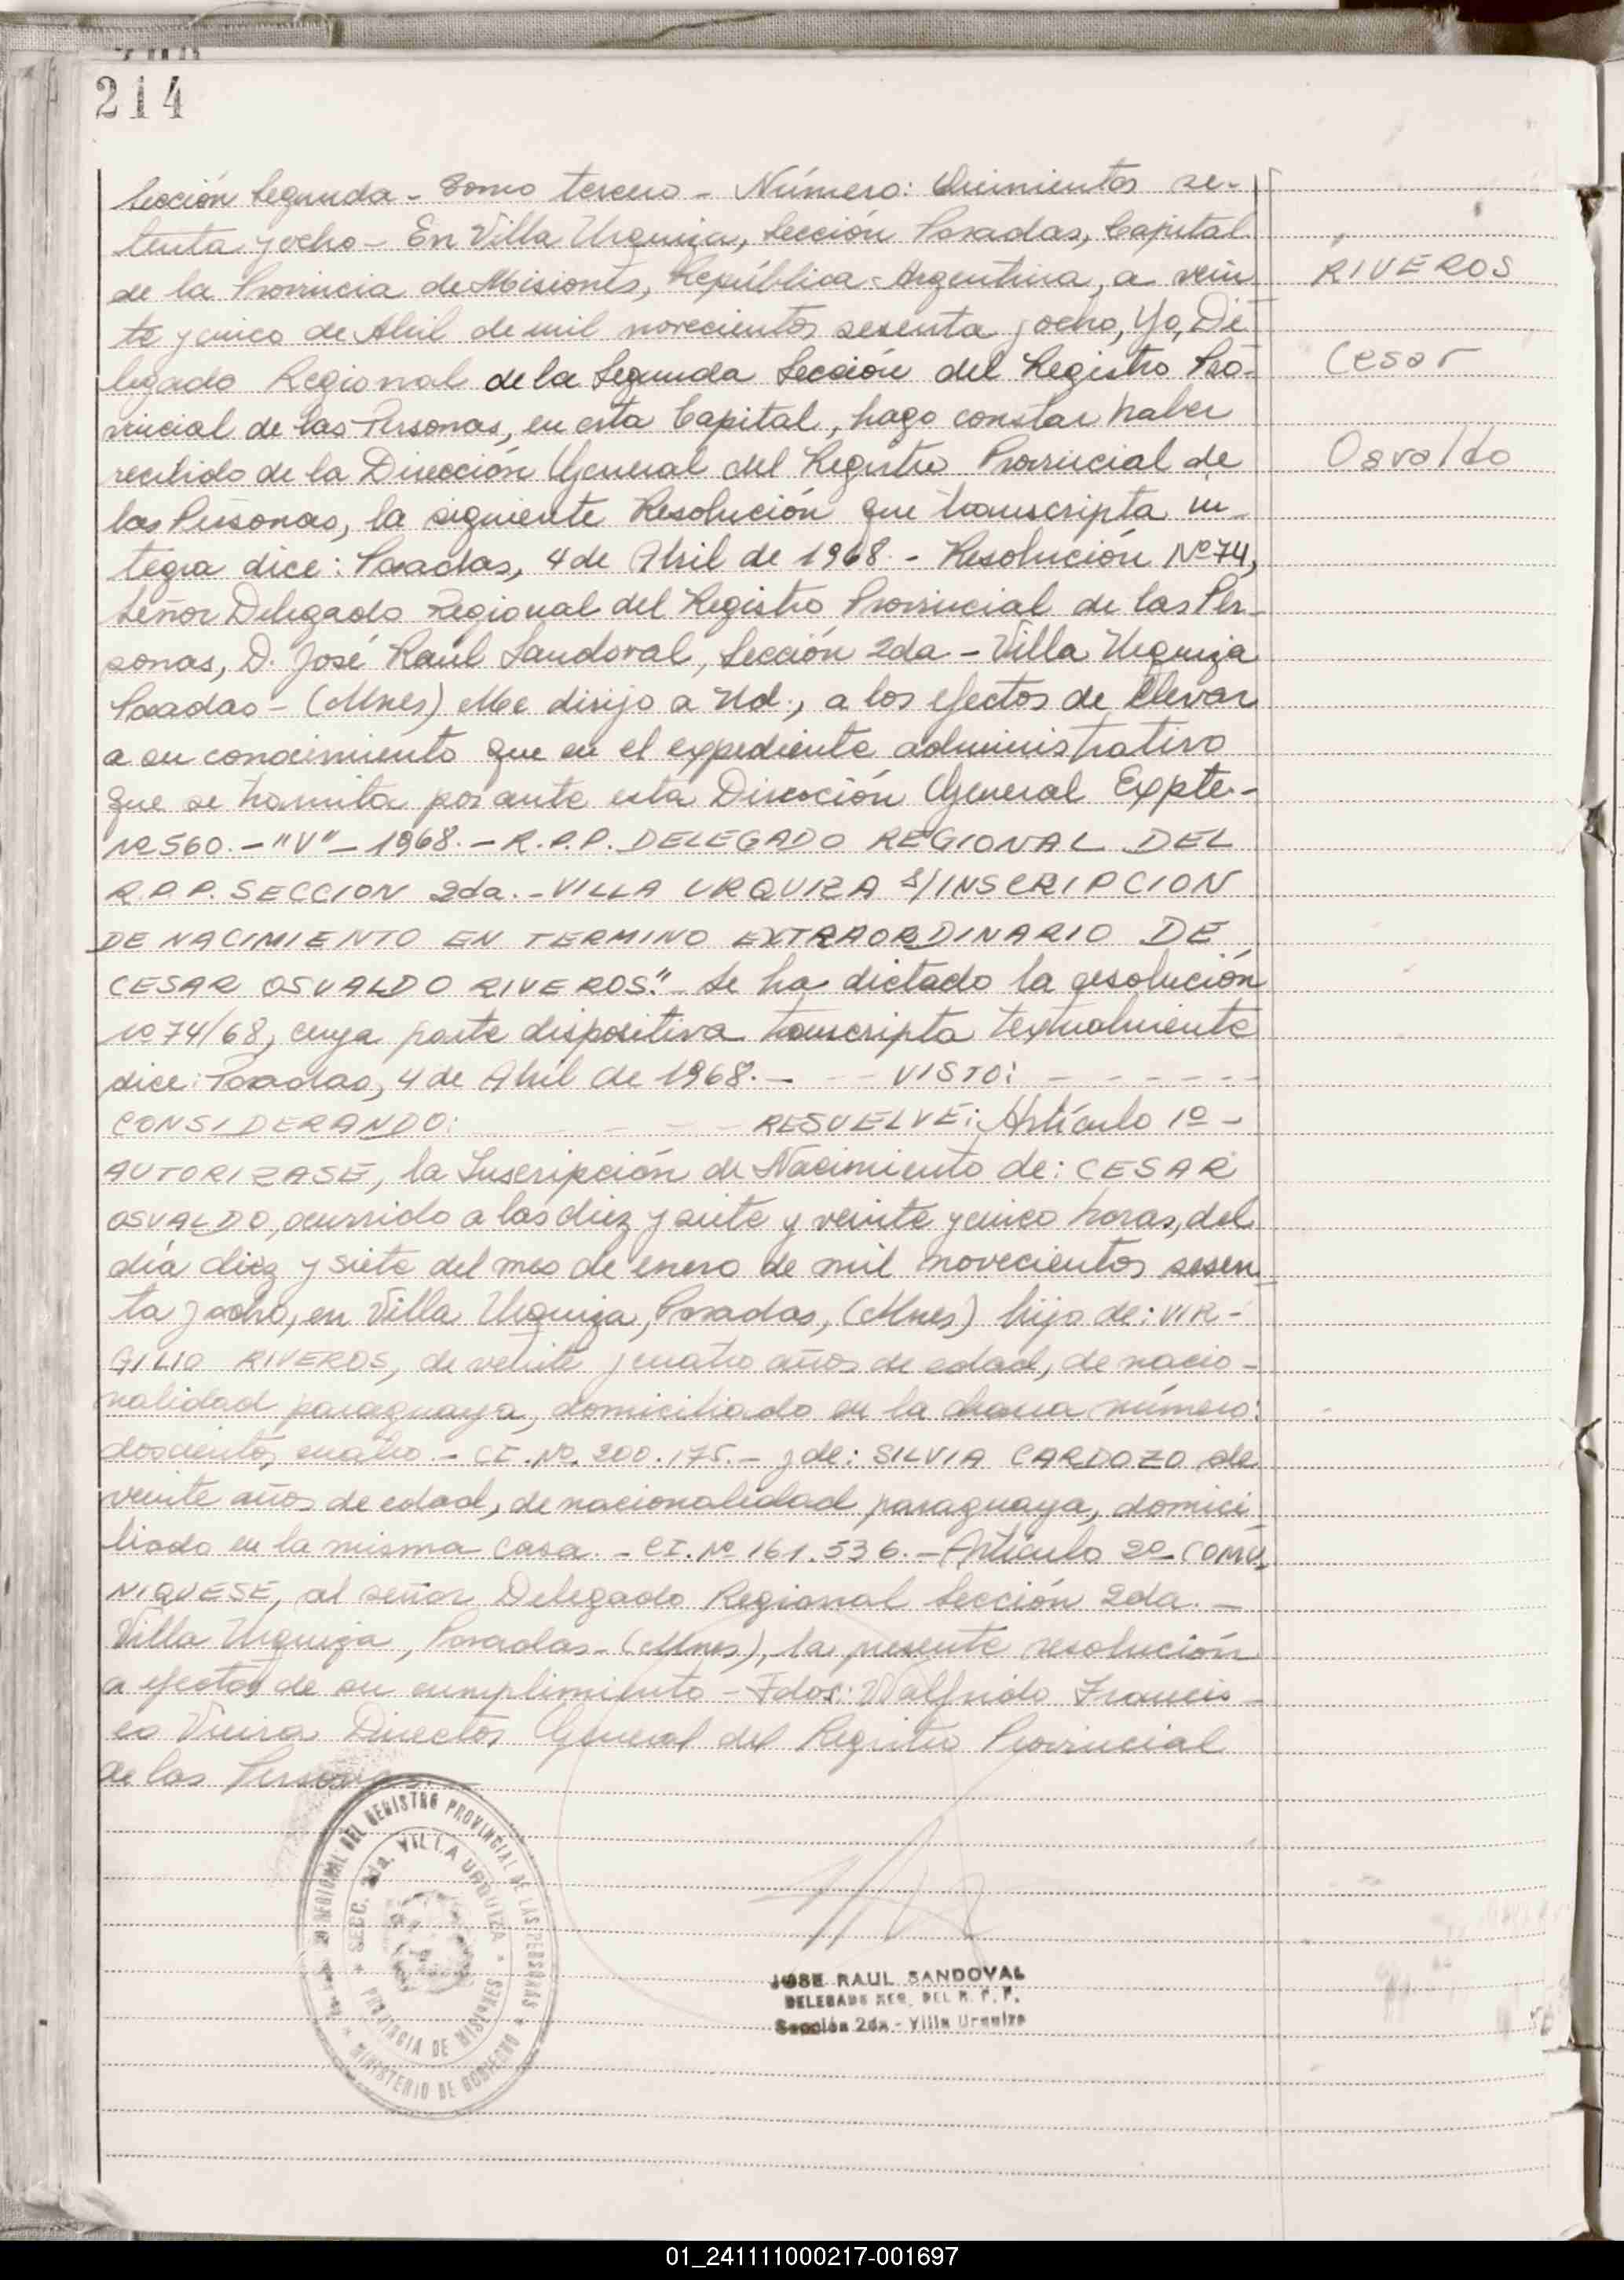 214
Sección Segunda - Tomo tercero - Número: Quinientos se-
tenta y ocho - En Villa Urquiza, Sección Posadas, Capital
de la Provincia de Misiones, República Argentina, a vein
te y cinco de Abril de mil novecientos sesenta y ocho, Yo, De
legado Regional de la Segunda Sección del Registro Pro-
vincial de las Personas, en esta Capital, hago constar haber
recibido de la Dirección General del Registro Provincial de
las Personas, la siguiente Resolución que transcripta ín-
tegra dice: Posadas, 4 de Abril de 1968. - Resolución Nº 74,
Señor Delegado Regional del Registro Provincial de las Per-
sonas, D. José Raúl Sandoval, Sección 2da - Villa Urquiza
Posadas - (Mnes) Me dirijo a Ud., a los efectos de Elevar
a su conocimiento que en el expediente administrativo
que se tramita por ante esta Dirección General Expte.-
Nº 560. - "V" - 1968. - R.P.P. DELEGADO REGIONAL DEL
R.P.P. SECCION 2da. - VILLA URQUIZA S/INSCRIPCION
DE NACIMIENTO EN TERMINO EXTRAORDINARIO DE
CESAR OSVALDO RIVEROS." - Se ha dictado la resolución
Nº 74/68, cuya parte dispositiva transcripta textualmente
dice: Posadas, 4 de Abril de 1968. - - - VISTO: - - - - - -
CONSIDERANDO: - - - - - RESUELVE: Artículo 1º -
AUTORIZASE, la Inscripción de Nacimiento de: CESAR
OSVALDO, ocurrido a las diez y siete y veinte y cinco horas, del
día diez y siete del mes de enero de mil novecientos sesen
ta y ocho, en Villa Urquiza, Posadas, (Mnes) hijo de: VIR-
GILIO RIVEROS, de veinte y cuatro años de edad, de nacio-
nalidad paraguaya, domiciliado en la chacra número:
doscientos cuatro. - CI. Nº. 200.175. - y de: SILVIA CARDOZO de
veinte años de edad, de nacionalidad paraguaya, domici
liada en la misma casa. - CI. Nº 161.536. - Artículo 2º - COMU
NIQUESE, al señor Delegado Regional Sección 2da. -
Villa Urquiza, Posadas - (Mnes), la presente resolución
a efectos de su cumplimiento - Fdos: Walfrido Francis-
co Vieira Director General del Registro Provincial
de las Personas. -
RIVEROS
Cesar
Osvaldo
REGIONAL DEL REGISTRO PROVINCIAL DE LAS PERSONAS
SECC. 2da. VILLA URQUIZA
PROVINCIA DE MISIONES
MINISTERIO DE GOBIERNO
JOSE RAUL SANDOVAL
DELEGADO REG. DEL R. P. P.
Sección 2da - Villa Urquiza
01_241111000217-001697